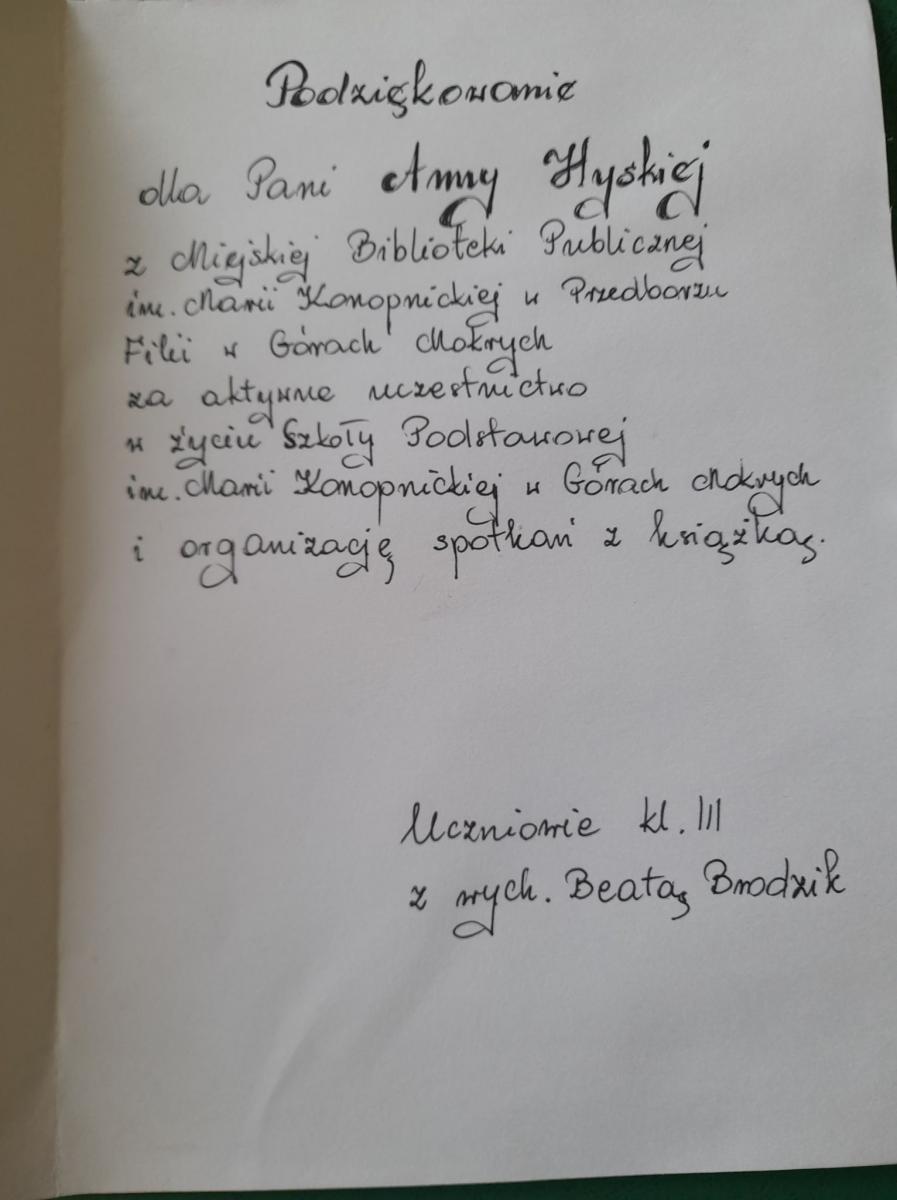 Podziękowanie
dla Pani Anny Hyskiej
z Miejskiej Biblioteki Publicznej
im. Marii Konopnickiej w Przedborzu
Filii w Górach Mokrych
za aktywne uczestnictwo
w życiu Szkoły Podstawowej
im. Marii Konopnickiej w Górach Mokrych
i organizację spotkań z książką.
Uczniowie kl. III
z wych. Beatą Brodzik